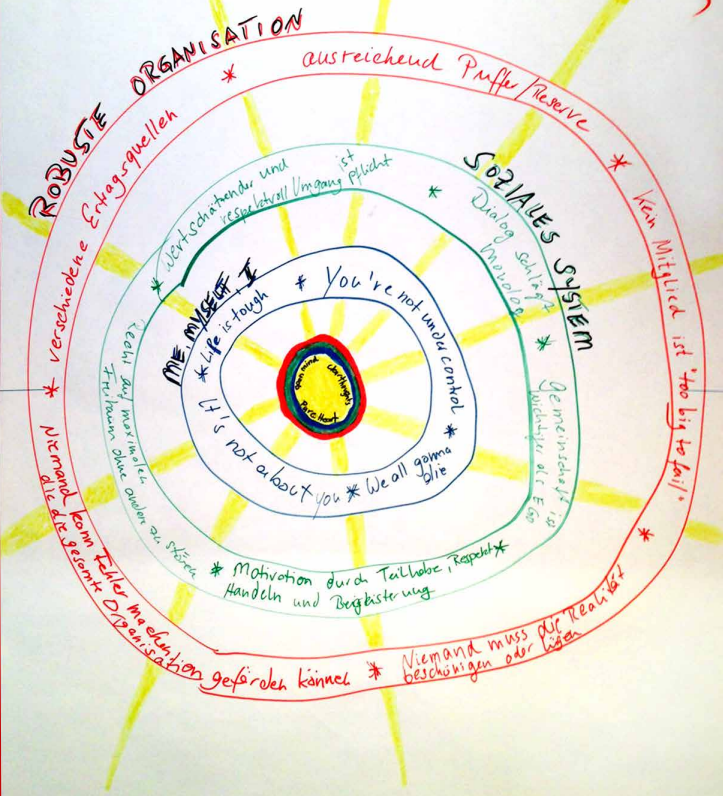 ROBUSTE ORGANISATION
* ausreichend Puffer/Reserve
* Kein Mitglied ist "too big to fail"
* Niemand muss die Realität
beschönigen oder lügen
* Niemand kann Fehler machen
die die gesamte Organisation geförden können
* verschiedene Ertragsquellen
SOZIALES SYSTEM
* Wertschätzender und
respektvoll Umgang ist Pflicht
* Dialog schlägt
Monolog
* Gemeinschaft ist
wichtiger als EGO
* Motivation durch Teilhabe, Respekt
Handeln und Begeisterung
Recht auf maximalen
Freiraum ohne andere zu stören
ME, MYSELF, I
* Life is tough
* You're not under control
* We all gonna
die
* It's not about you
open mind
clear thoughts
Pure Heart